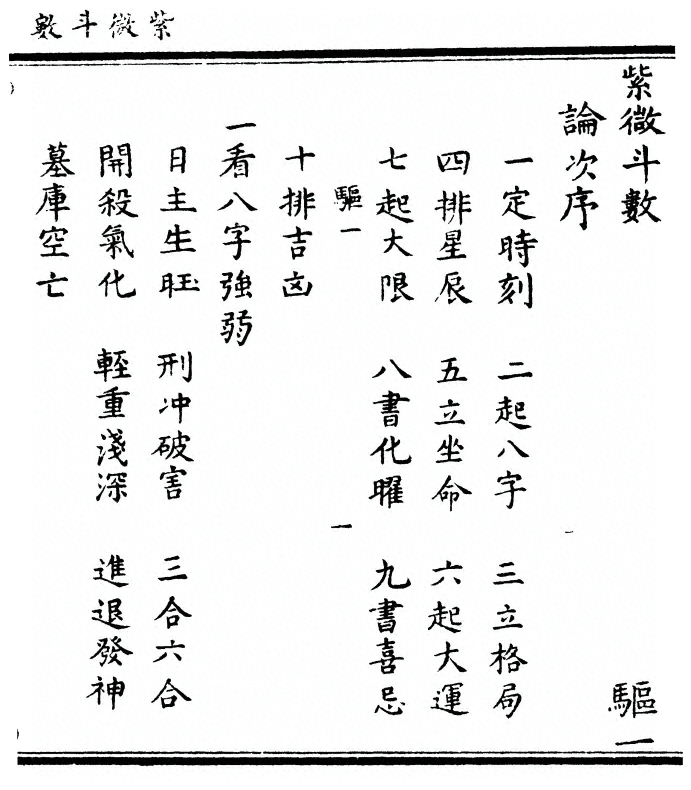 紫微斗數
紫微斗數 驅一
論次序
一定時刻 二起八字 三立格局
四排星辰 五立坐命 六起大運
七起大限 八書化曜 九書喜忌
驅一 一
十排吉凶
一看八字強弱
日主生旺 刑冲破害 三合六合
開殺氣化 輕重淺深 進退發神
墓庫空亡